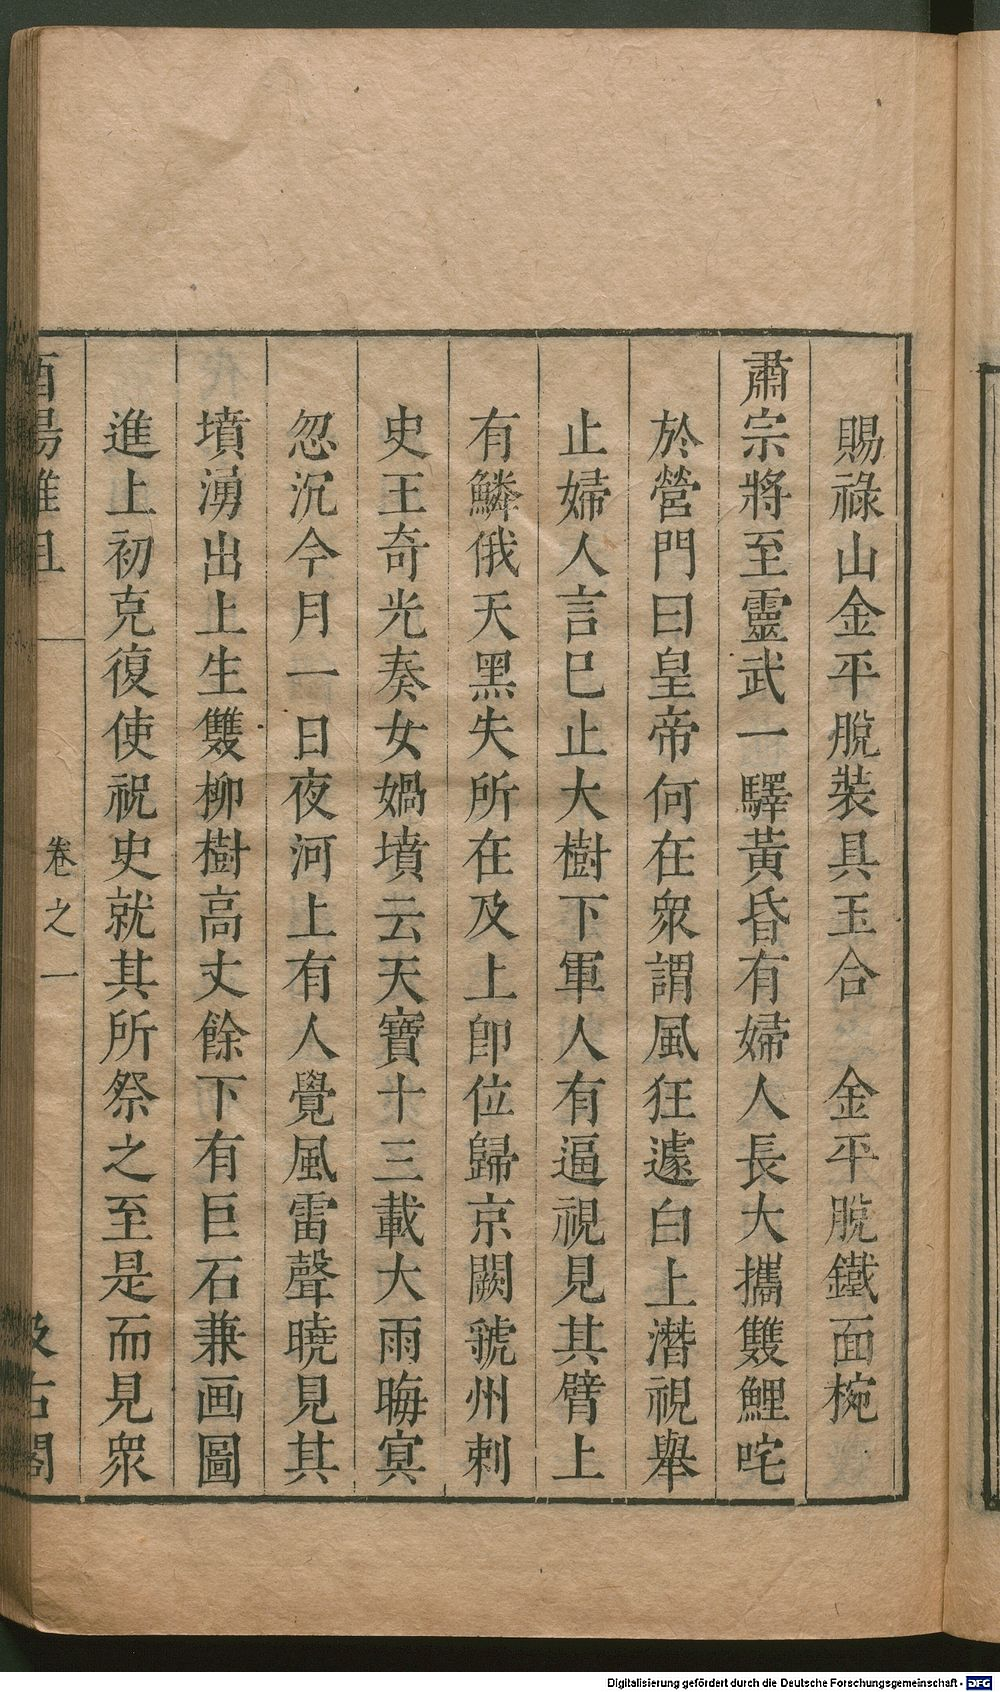 賜祿山金平脫裝具玉合　金平脫鐵面椀
肅宗將至靈武一驛黃昏有婦人長大攜雙鯉咤
於營門曰皇帝何在眾謂風狂遽白上潛視舉
止婦人言巳止大樹下軍人有逼視見其臂上
有鱗俄天黑失所在及上即位歸京闕虢州刺
史王奇光奏女媧墳云天寶十三載大雨晦冥
忽沉今月一日夜河上有人覺風雷聲曉見其
墳湧出上生雙柳樹高丈餘下有巨石兼画圖
進上初克復使祝史就其所祭之至是而見眾
酉陽雜俎
卷之一
汲古閣
Digitalisierung gefördert durch die Deutsche Forschungsgemeinschaft - DFG